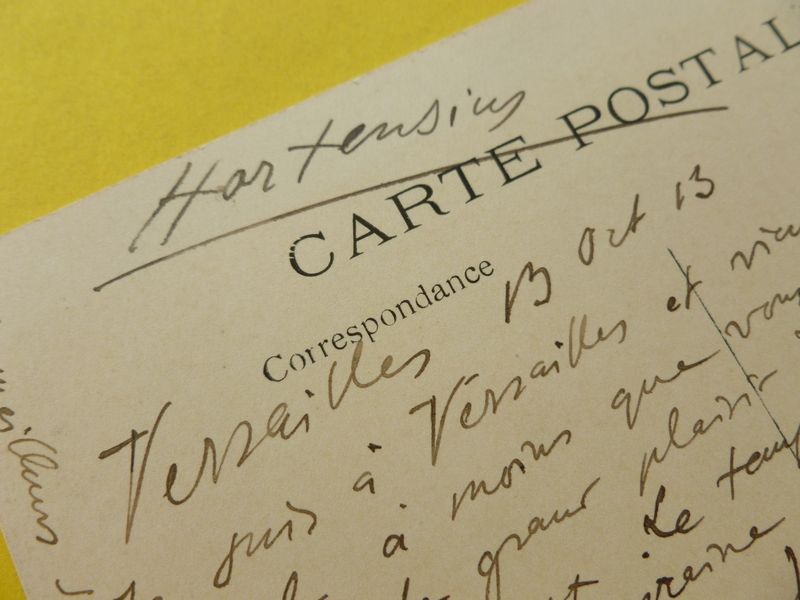 Hortensius
CARTE POSTAL
Correspondance
Versailles 13 Oct 13
suis à Versailles et
à moins que vous
grand plaisir
Le temp